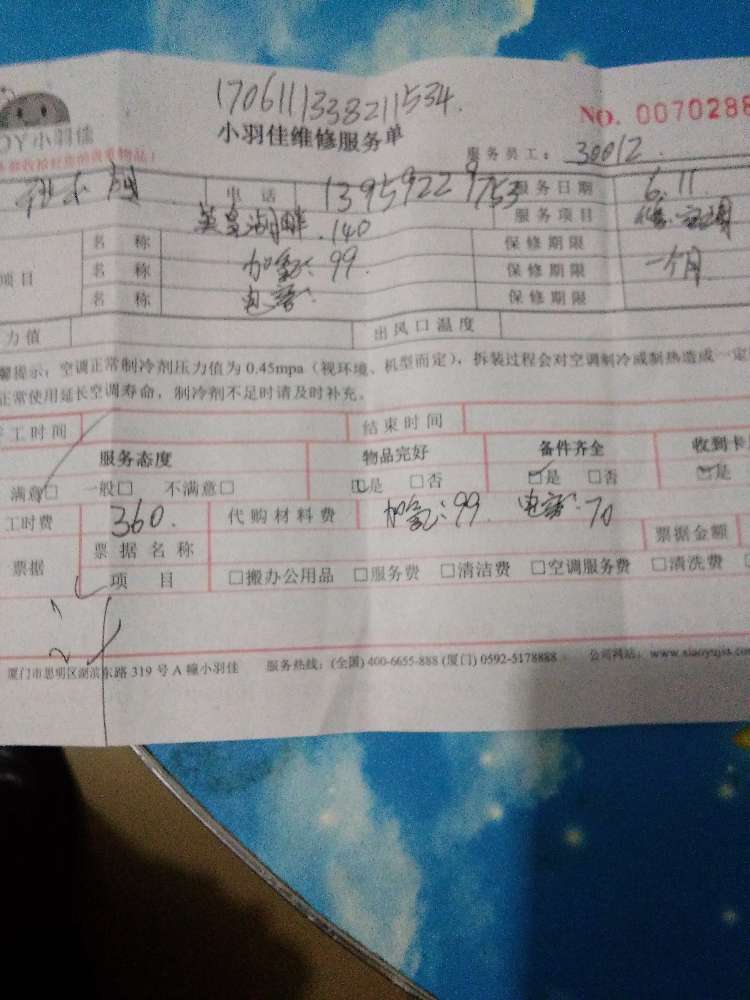 1706111338211534.
NO. 0070288
小羽佳维修服务单
JOY小羽佳
服务员工: 30012.
电话 13959229753 服务日期 6.11
.140 服务项目
名称 加氨: 99. 保修期限
项目 名称 保修期限 一个月
名称 电容: 保修期限
力值 出风口温度
馨提示: 空调正常制冷剂压力值为 0.45mpa (视环境、机型而定), 拆装过程会对空调制冷或制热造成一定
正常使用延长空调寿命, 制冷剂不足时请及时补充。
工时间 结束时间
服务态度 物品完好 备件齐全 收到卡
满意□ 一般□ 不满意□ □是 □否 □是 □否 □是
工时费 360. 代购材料费 加氨: 99. 电容: 70
票据 票据名称 票据金额
项目 □搬办公用品 □服务费 □清洁费 □空调服务费 □清洗费
厦门市思明区湖滨东路 319 号 A 幢小羽佳 服务热线: (全国) 400-6655-888 (厦门) 0592-5178888 公司网站: www.xiaoyujia.com